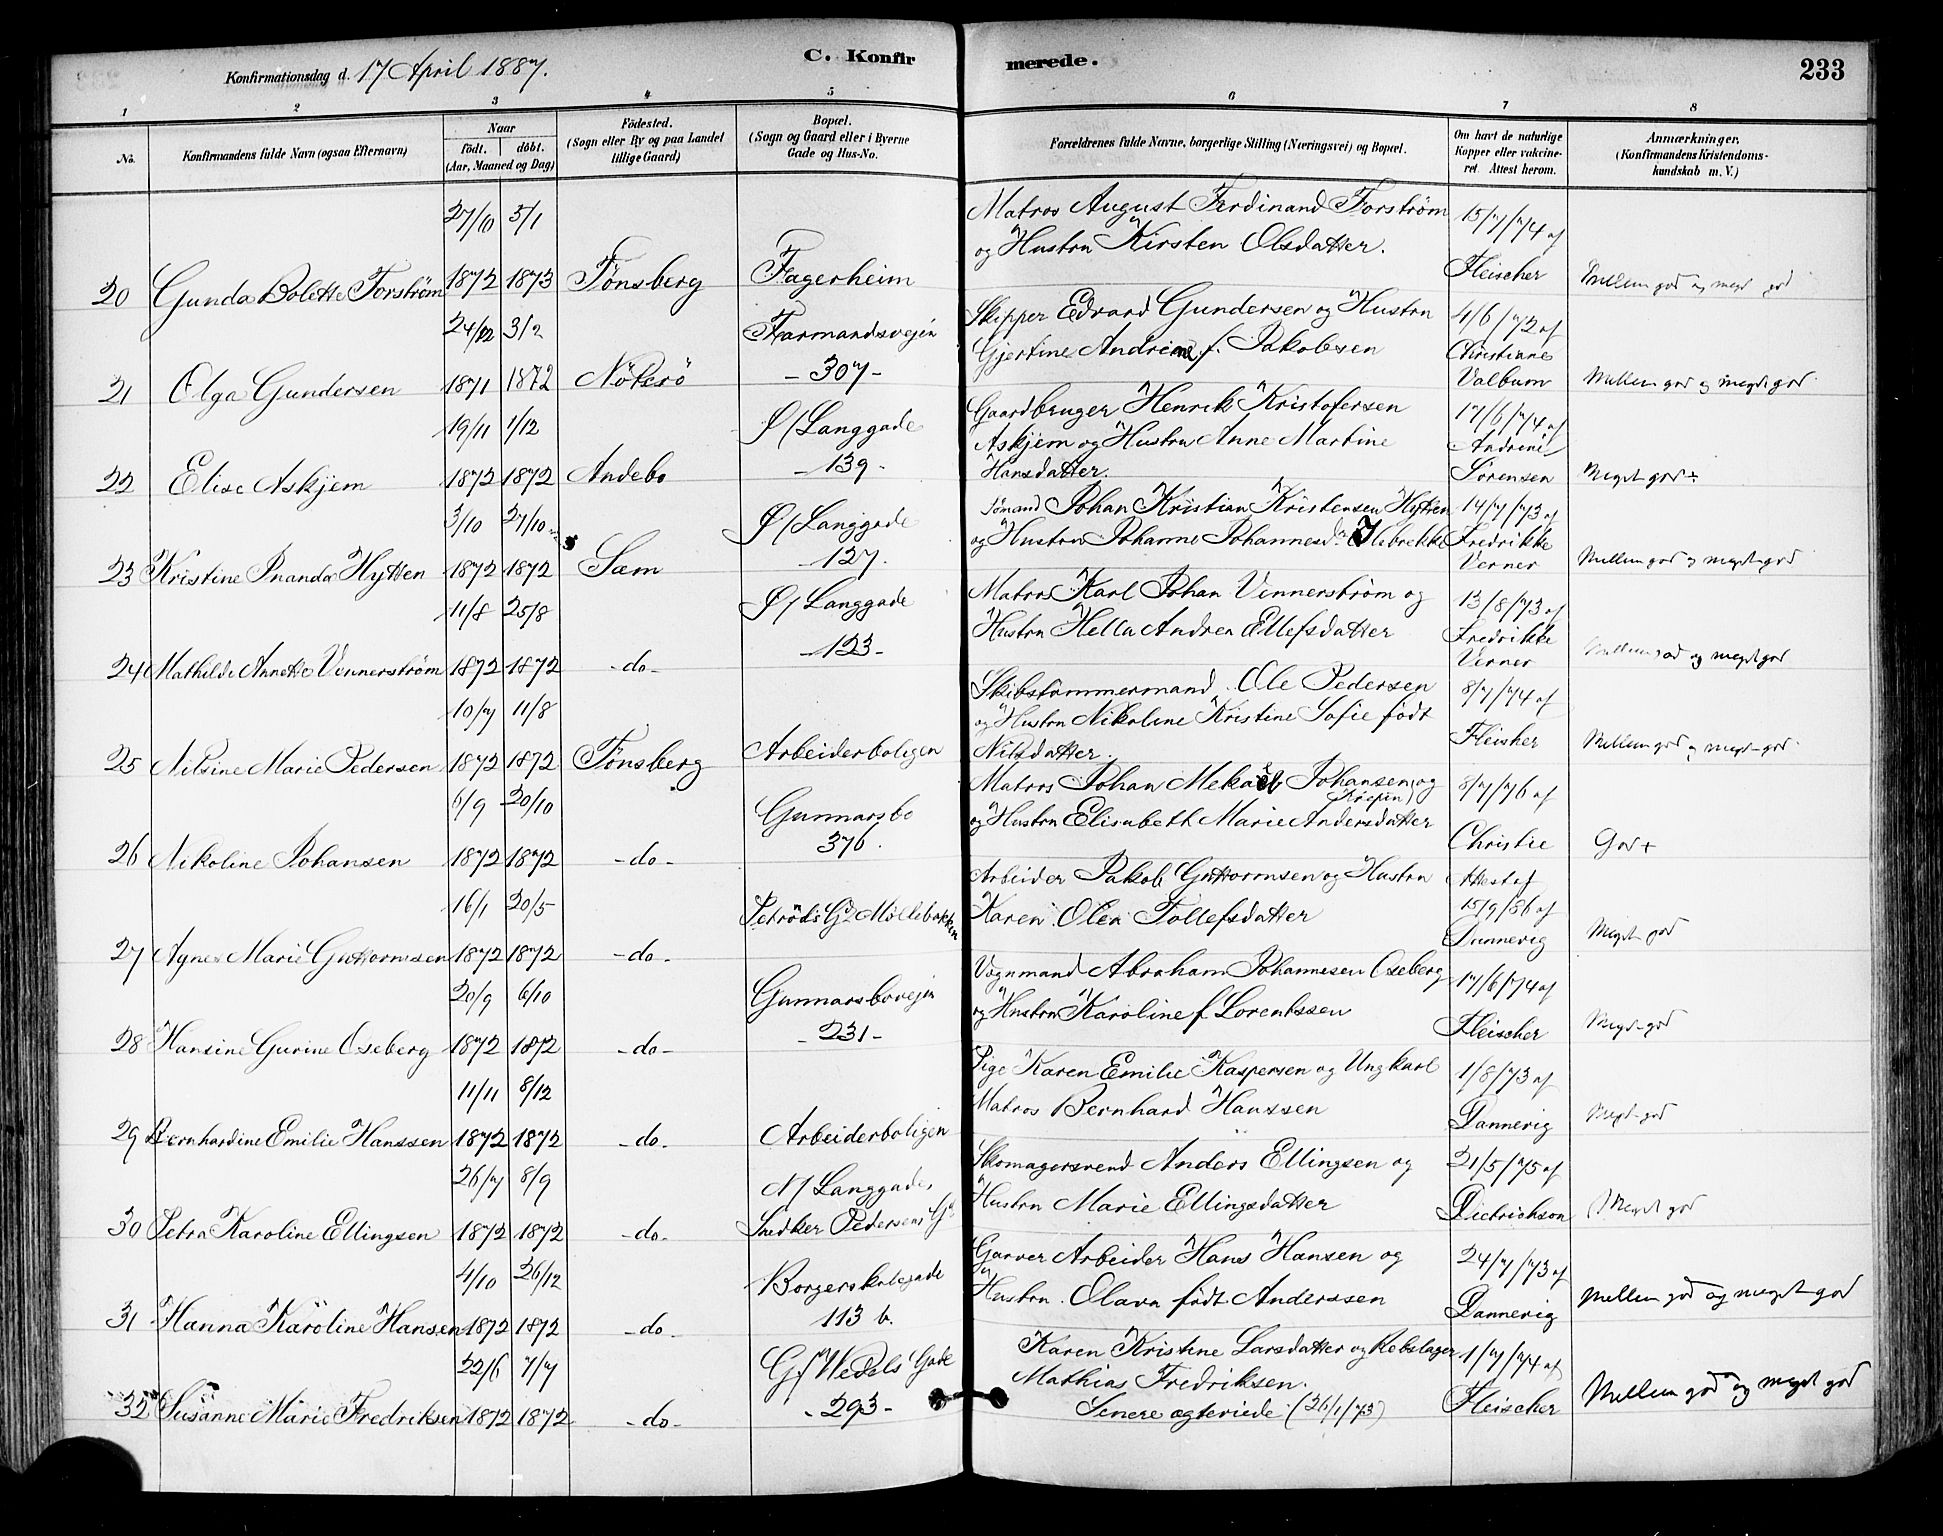 Konfirmationsdag d. 17 April 1887.
C. Konfirmerede.
233
1
2
3
4
5
6
7
8
No.
Konfirmandens fulde Navn (ogsaa Efternavn)
Naar
födt. döbt.
(Aar, Maaned og Dag)
Födested.
(Sogn eller By og paa Landet
tillige Gaard)
Bopæl.
(Sogn og Gaard eller i Byerne
Gade og Hus-No.
Forældrenes fulde Navne, borgerlige Stilling (Næringsvei) og Bopæl.
Om havt de naturlige
Kopper eller vakcine-
ret. Attest herom.
Anmærkninger,
(Konfirmandens Kristendoms-
kundskab m. V.)
27/10 5/1
Matros August Ferdinand Forström 15/7/74 af
og Hustru Kirsten Olsdatter.
20 Gunda Bolette Forström 1872 1873 Tönsberg Fagerheim Fleischer Mellem god og meget god
24/12 3/2 Farmandsvejen Skipper Edvard Gundersen og Hustru 4/6/72 af
Gjertine Andrine f. Jakobsen Christiane
21 Olga Gundersen 1871 1872 Nöterö - 307 - Valbum Mellem god og meget god
19/11 1/12 Ø/Langgade Gaardbruger Henrik Kristofersen 17/6/74 af
Askjem og Hustru Anne Martine Andrine
22 Elise Askjem 1872 1872 Andebo - 139 - Hansdatter. Sörensen Meget god ÷
3/10 27/10 Ø/Langgade Sömand Johan Kristian Kristensen Hytten 14/7/73 af
og Hustru Johanne Johannesd. Fredrikke
23 Kristine Hytten 1872 1872 Sem 127. Verner Mellem god og meget god
11/8 25/8 Ø/Langgade Matros Karl Johan Vennerström og 13/8/73 af
Hustru Hella Andrea Ellefsdatter Fredrikke
24 Mathilde Annette Vennerström 1872 1872 - do - - 123 - Verner Mellem god og meget god
10/7 11/8 Skibstömmermand Ole Pedersen 8/7/74 af
og Hustru Nikoline Kristine Sofie födt
25 Nilsine Marie Pedersen 1872 1872 Tönsberg Arbeiderboligen Nilsdatter. Fleisher Mellem god og meget god
6/9 20/10 Gunnarsbo Matros Johan Mekael Johansen og 8/7/76 af
og Hustru Elisabeth Marie Andersdatter
26 Nikoline Johansen 1872 1872 - do - 376. Christie God +
16/1 20/5 Arbeider Jakob Guttormsen og Hustru Attest af
Karen Olea Tollefsdatter 15/9/86 af
27 Agnes Marie Guttormsen 1872 1872 - do - Dannevig Meget god
20/9 6/10 Gunnarsbovejen Vognmand Abraham Johannesen Oseberg 17/6/74 af
og Hustru Karoline f. Lorentssen
28 Hansine Gurine Oseberg 1872 1872 - do - - 231 - Fleischer Meget god
11/11 8/12 Pige Karen Emilie Kaspersen og Ungkarl 1/8/73 af
Matros Bernhard Hanssen
29 Bernhardine Emilie Hanssen 1872 1872 - do - Arbeiderboligen Dannevig Meget god
26/7 8/9 N/Langgade Skomagersvend Anders Ellingsen og 21/5/75 af
Hustru Marie Ellingsdatter
30 Petra Karoline Ellingsen 1872 1872 - do - Snedker Pedersens Gd Dietrichson Meget god
4/10 26/12 Borgerskolegade Garver Arbeider Hans Hansen og 24/7/73 af
Hustru Olava födt Anderssen
31 Hanna Karoline Hansen 1872 1872 - do - 113 b. Dannevig Mellem god og meget god
22/6 7/7 Gf Wedels Gade Karen Kristine Larsdatter og Rebslager 1/7/74 af
Mathias Fredriksen.
32 Susanne Marie Fredriksen 1872 1872 - do - - 293 - Senere ægteviede (26/1/73) Fleischer Mellem god og meget god